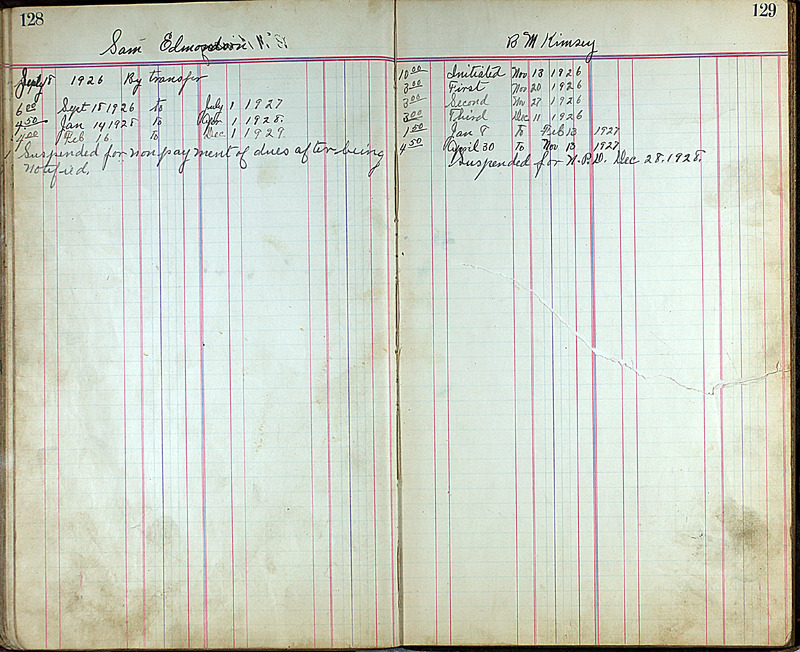 128
Sam Edmondson
Sept 18 1926 By transfer
6 00 Sept 18 1926 to July 1 1927
4 50 Jan 14 1928 to Apr 1 1928.
4 00 Feb 16 to Dec 1 1929.
Suspended for non payment of dues after being
notified.
129
B M Kimsey
10 00 Initiated Nov 13 1926
3 00 First Nov 20 1926
3 00 Second Nov 27 1926
3 00 Third Dec 11 1926
1 50 Jan 8 to Feb 13 1927
4 50 April 30 to Nov 13 1927
Suspended for N.P.D. Dec 28. 1928.